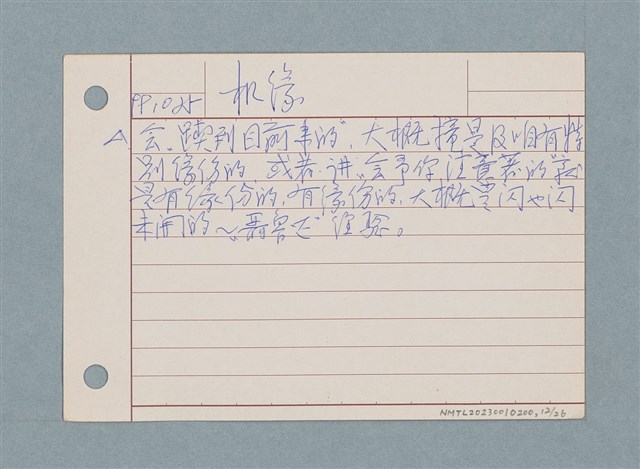 PP1025
机缘
A 会"踫到目前来的"，大概攏是及咱有特
别缘份的，或者讲"会予你注意著的"就
是有缘份的，有缘份的，大概是闪也闪
未開的～聶魯达"经驗。
NMTL20230010200, 12/26